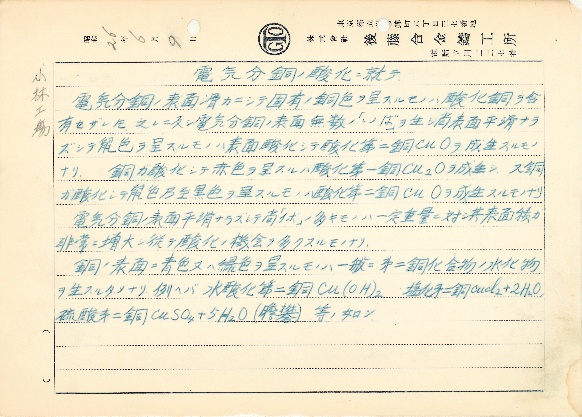 昭和 26年 6月 9日
株式会社 後藤合金鋳工所
小林工場
電気分銅ノ酸化ニ就テ
電気分銅ノ表面滑カニシテ固有ノ銅色ヲ呈スルモノハ酸化銅ヲ含
有セザレドモ 電気分銅ノ表面無数ノいぼヲ生シ尚表面平滑ナラ
ズシテ褐色ヲ呈スルモノハ表面酸化シテ酸化第二銅CuOヲ成生スルモノ
ナリ. 銅カ酸化シテ赤色ヲ呈スルハ酸化第一銅Cu₂Oヲ成生シ. 又銅
カ酸化シテ褐色乃至黒色ヲ呈スルモノハ酸化第二銅CuOヲ成生スルモノナリ
電気分銅ノ表面平滑ナラズシテ尚いぼノ多キモノハ一定重量ニ対シ其表面積カ
非常ニ増大シ従テ酸化ノ機会ヲ多クスルモノナリ.
銅ノ表面ニ青色又ハ緑色ヲ呈スルモノハ一般ニ第二銅化合物ノ水化物
ヲ生スルタメナリ 例ヘバ 水酸化第二銅Cu(OH)₂ 塩化第二銅CuCl₂+2H₂O
硫酸第二銅CuSO₄+5H₂O(胆礬) 等ノ如シ